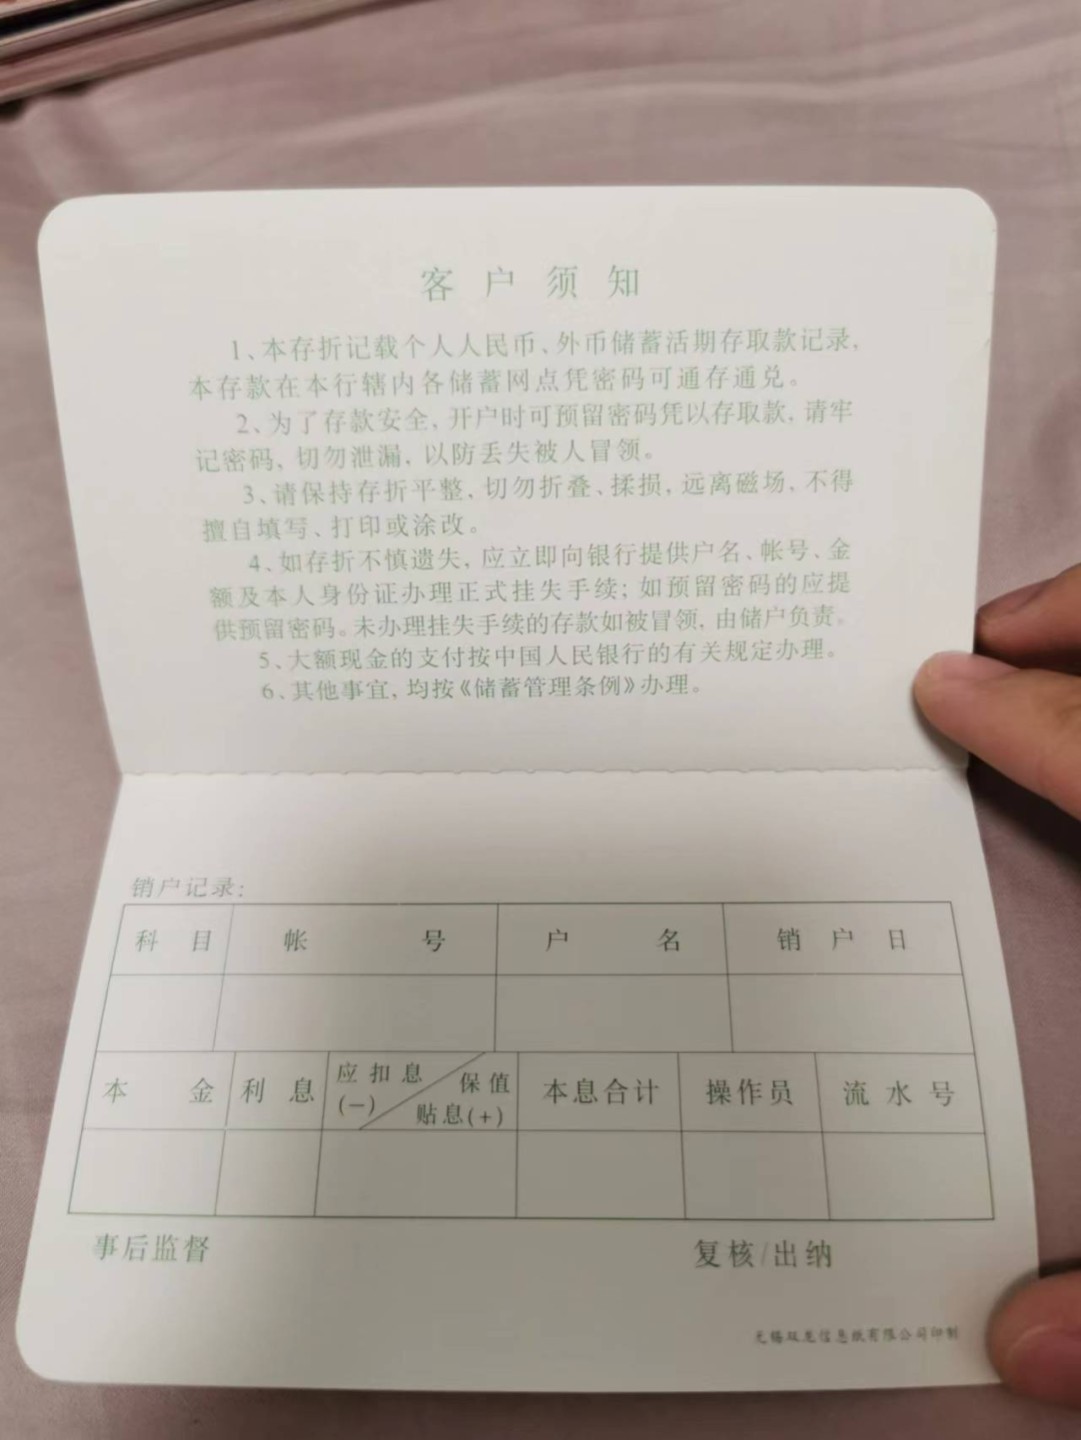 客户须知
1、本存折记载个人人民币、外币储蓄活期存取款记录,
本存款在本行辖内各储蓄网点凭密码可通存通兑。
2、为了存款安全,开户时可预留密码凭以存取款,请牢
记密码,切勿泄漏,以防丢失被人冒领。
3、请保持存折平整,切勿折叠、揉损,远离磁场,不得
擅自填写、打印或涂改。
4、如存折不慎遗失,应立即向银行提供户名、帐号、金
额及本人身份证办理正式挂失手续;如预留密码的应提
供预留密码。未办理挂失手续的存款如被冒领,由储户负责。
5、大额现金的支付按中国人民银行的有关规定办理。
6、其他事宜,均按《储蓄管理条例》办理。
销户记录:
科目 帐号 户名 销户日
本金 利息 应扣息(-) 保值贴息(+) 本息合计 操作员 流水号
事后监督 复核/出纳
无锡双龙信息纸有限公司印制